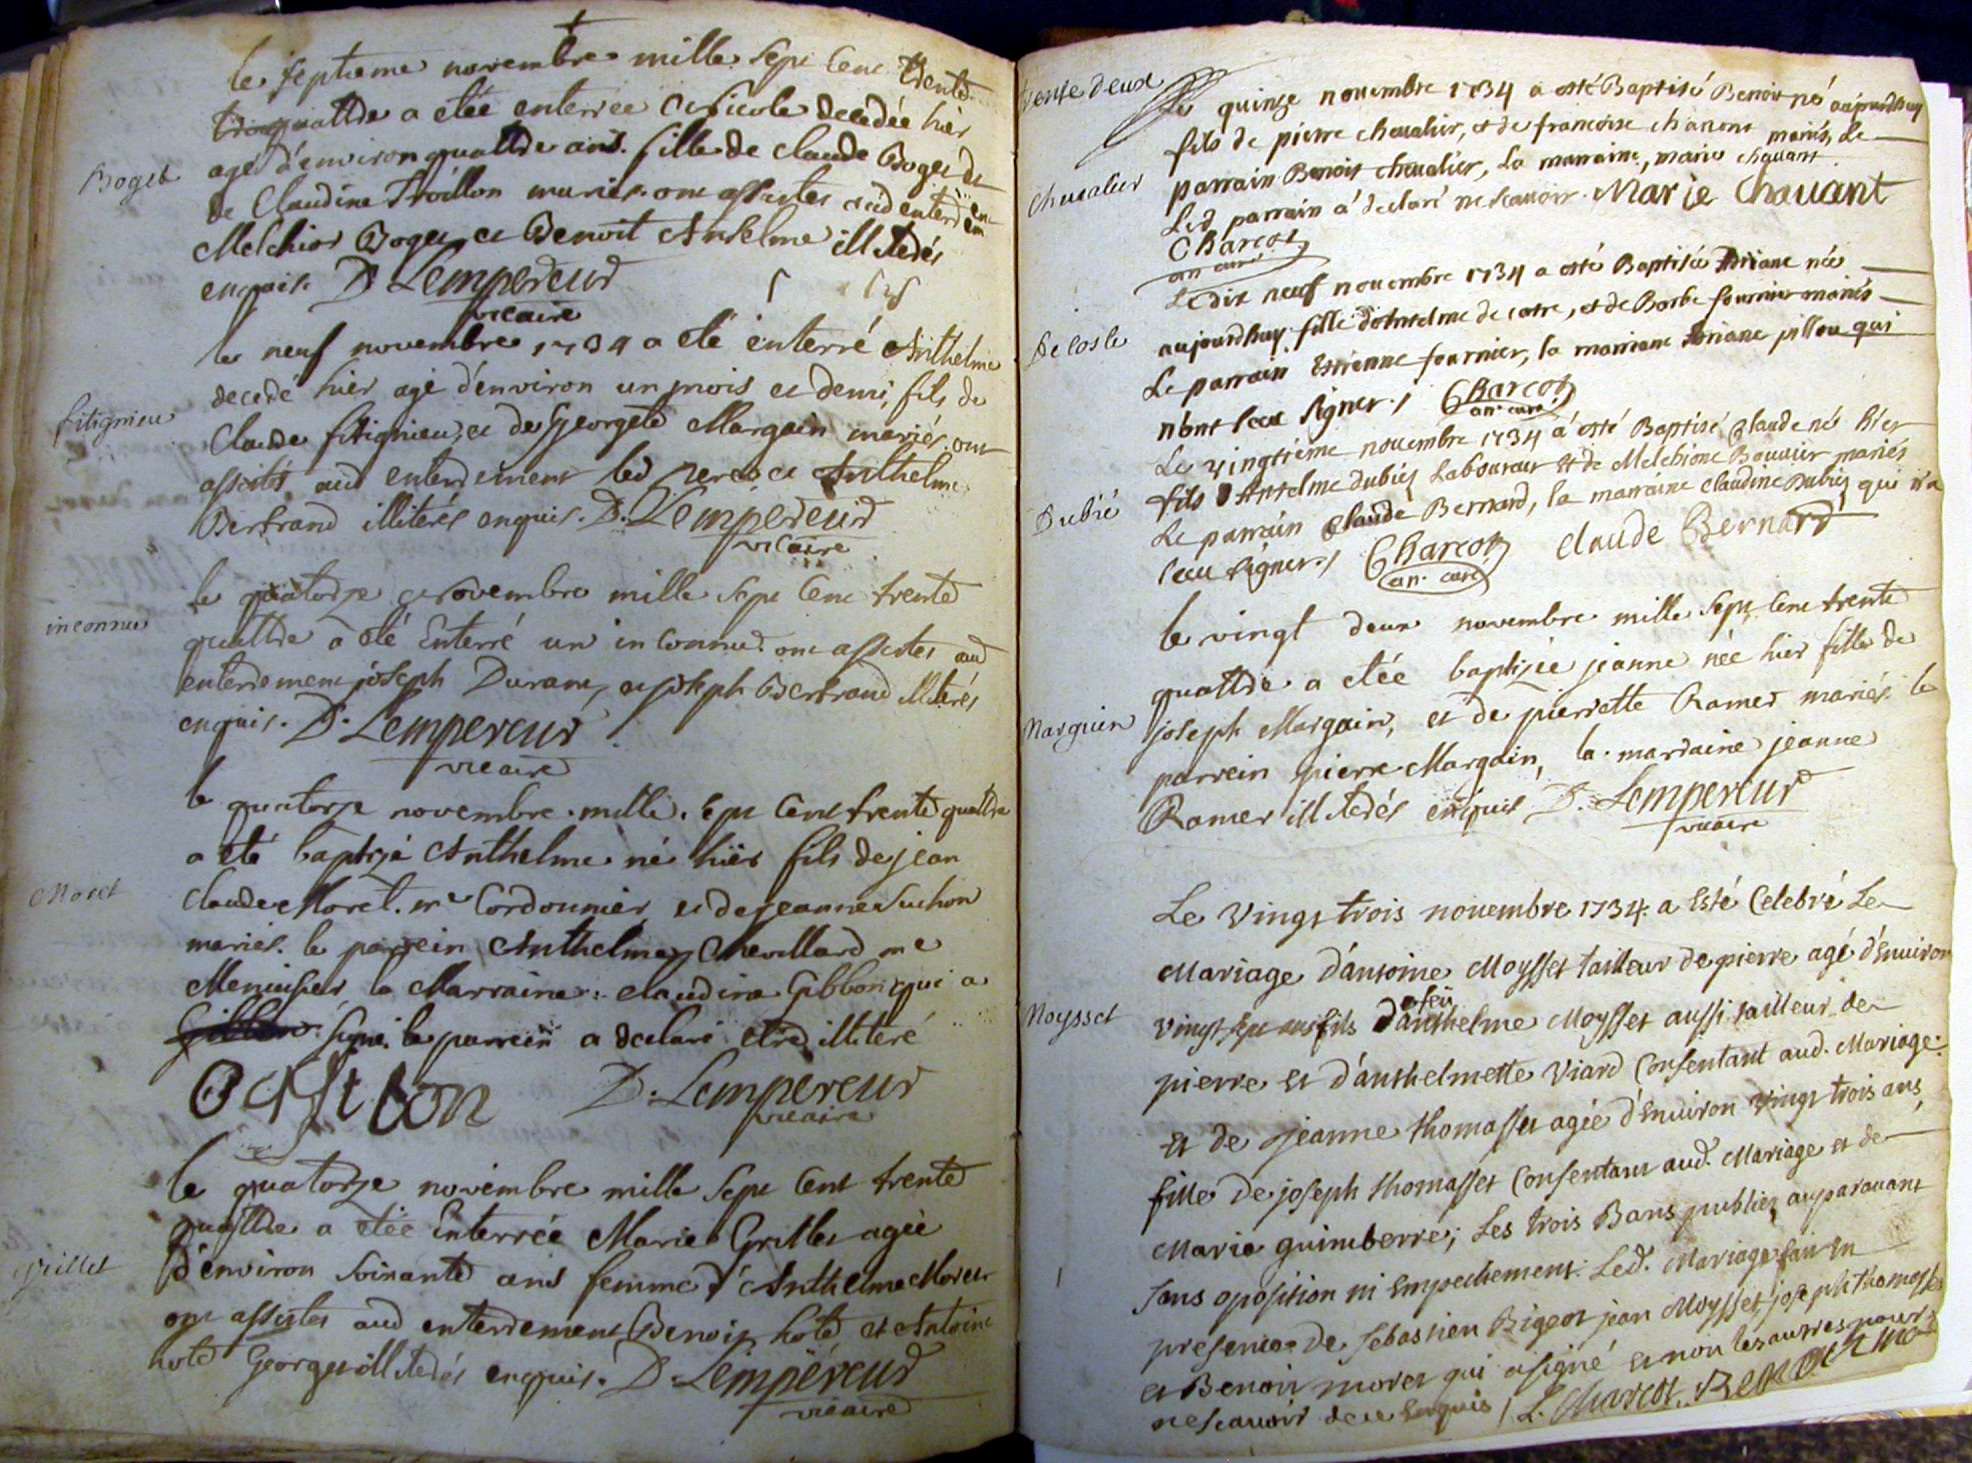 le septieme novembre mille sept cent trente
quattre a etée enterrée Nicole decedée hier
Boget
agé d'environ quattre ans. fille de Claude Boget et
de Claudine Troillon mariés ont assistes aud enterrem en
Melchior Boget et Benoit Anselme illiterés
enquis. D. Lempereur
vicaire
le neuf novembre 1734 a eté enterré Anthelme
decedé hier agé d'environ un mois et demi, fils de
fitignieu
Claude fitignieu, et de Georgete Margain mariés, ont
assistés aud enterrement led pere et Anthelme
Bertrand illiterés enquis. D. Lempereur
vicaire
le quatorze Novembre mille sept cent trente
inconnu
quattre a eté Enterré un inconnu. ont assistes aud
enterrement joseph Durant, et joseph Bertrand illiterés
enquis. D. Lempereur
vicaire
le quatorze novembre mille sept cent trente quattre
a eté baptizé Anthelme né hier fils de jean
Moret
Claude Moret. me Cordonnier et de jeanne Suchon
mariés. le parrein Anthelme Chevillard me
Menuisier la Marraine: claudine Gibbon qui a
signé. le parrein a declaré etre illiteré
D. Lempereur
vicaire
le quatorze novembre mille sept cent trente
quattre a etée Enterrée Marie Grillet agée
Grillet
d'environ soixante ans femme d'Anthelme Moret
ont assistes aud enterrement Benoit hote et Antoine
hote George illiterés enquis. D. Lempereur
vicaire
trente deux
Le quinze nouembre 1734 a esté Baptisé Benoit né aujourdhuy
fils de pierre cheualier, et de francoise chauant mariés, le
Cheualier
parrain Benoit cheualier, La marraine, marie chauant.
Led parrain á declaré ne scauoir. Marie Chauant
Charcot
an. curé
Ledit neuf nouembre 1734 a esté Baptisée Adriane née
De coste
aujourdhuy fille d'Antelme de coste, et de Barbe fournier mariés
Le parrain Estienne fournier, la marraine Adriane pillou qui
nont sceu signer. / Charcot
an. curé
Le vingtiéme nouembre 1734 á esté Baptisé Claude né hier
Dubié
fils d'Antelme Dubiez Laboureur et de Melchione Bouuier mariés
Le parrain Claude Bernard, la marraine Claudine Dubiez qui n'a
sceu signer. / Charcot Claude Bernard
an. curé
le vingt deux novembre mille sept cent trente
quattre a etée baptizée jeanne née hier fille de
Marguin
joseph Margain, et de pierrette Ramer mariés le
parrein pierre Margain, la marraine jeanne
Ramer illiterés enquis D. Lempereur
vicaire
Le vingt trois nouembre 1734. a Esté Celebré Le
Mariage d'antoine Moysset tailleur de pierre agé d'Enuiron
feu
Moysset
vingt sept ans fils d'anthelme Moysset aussi tailleur de
pierre et d'anthelmette Viard Consentant aud. Mariage.
Et de jeanne thomasset agée d'Enuiron vingt trois ans,
fille de joseph thomasset Consentant aud. Mariage et de
Marie guimberre; Les trois Bans publiez auparauant
sans oposition ni Empechement. Led. Mariage fait En
presence de Sebastien Bigeot jean Moysset, joseph thomasset
et Benoit moret qui a signé et non les autres pour
ne scauoir de ce Enquis / L. Charcot.